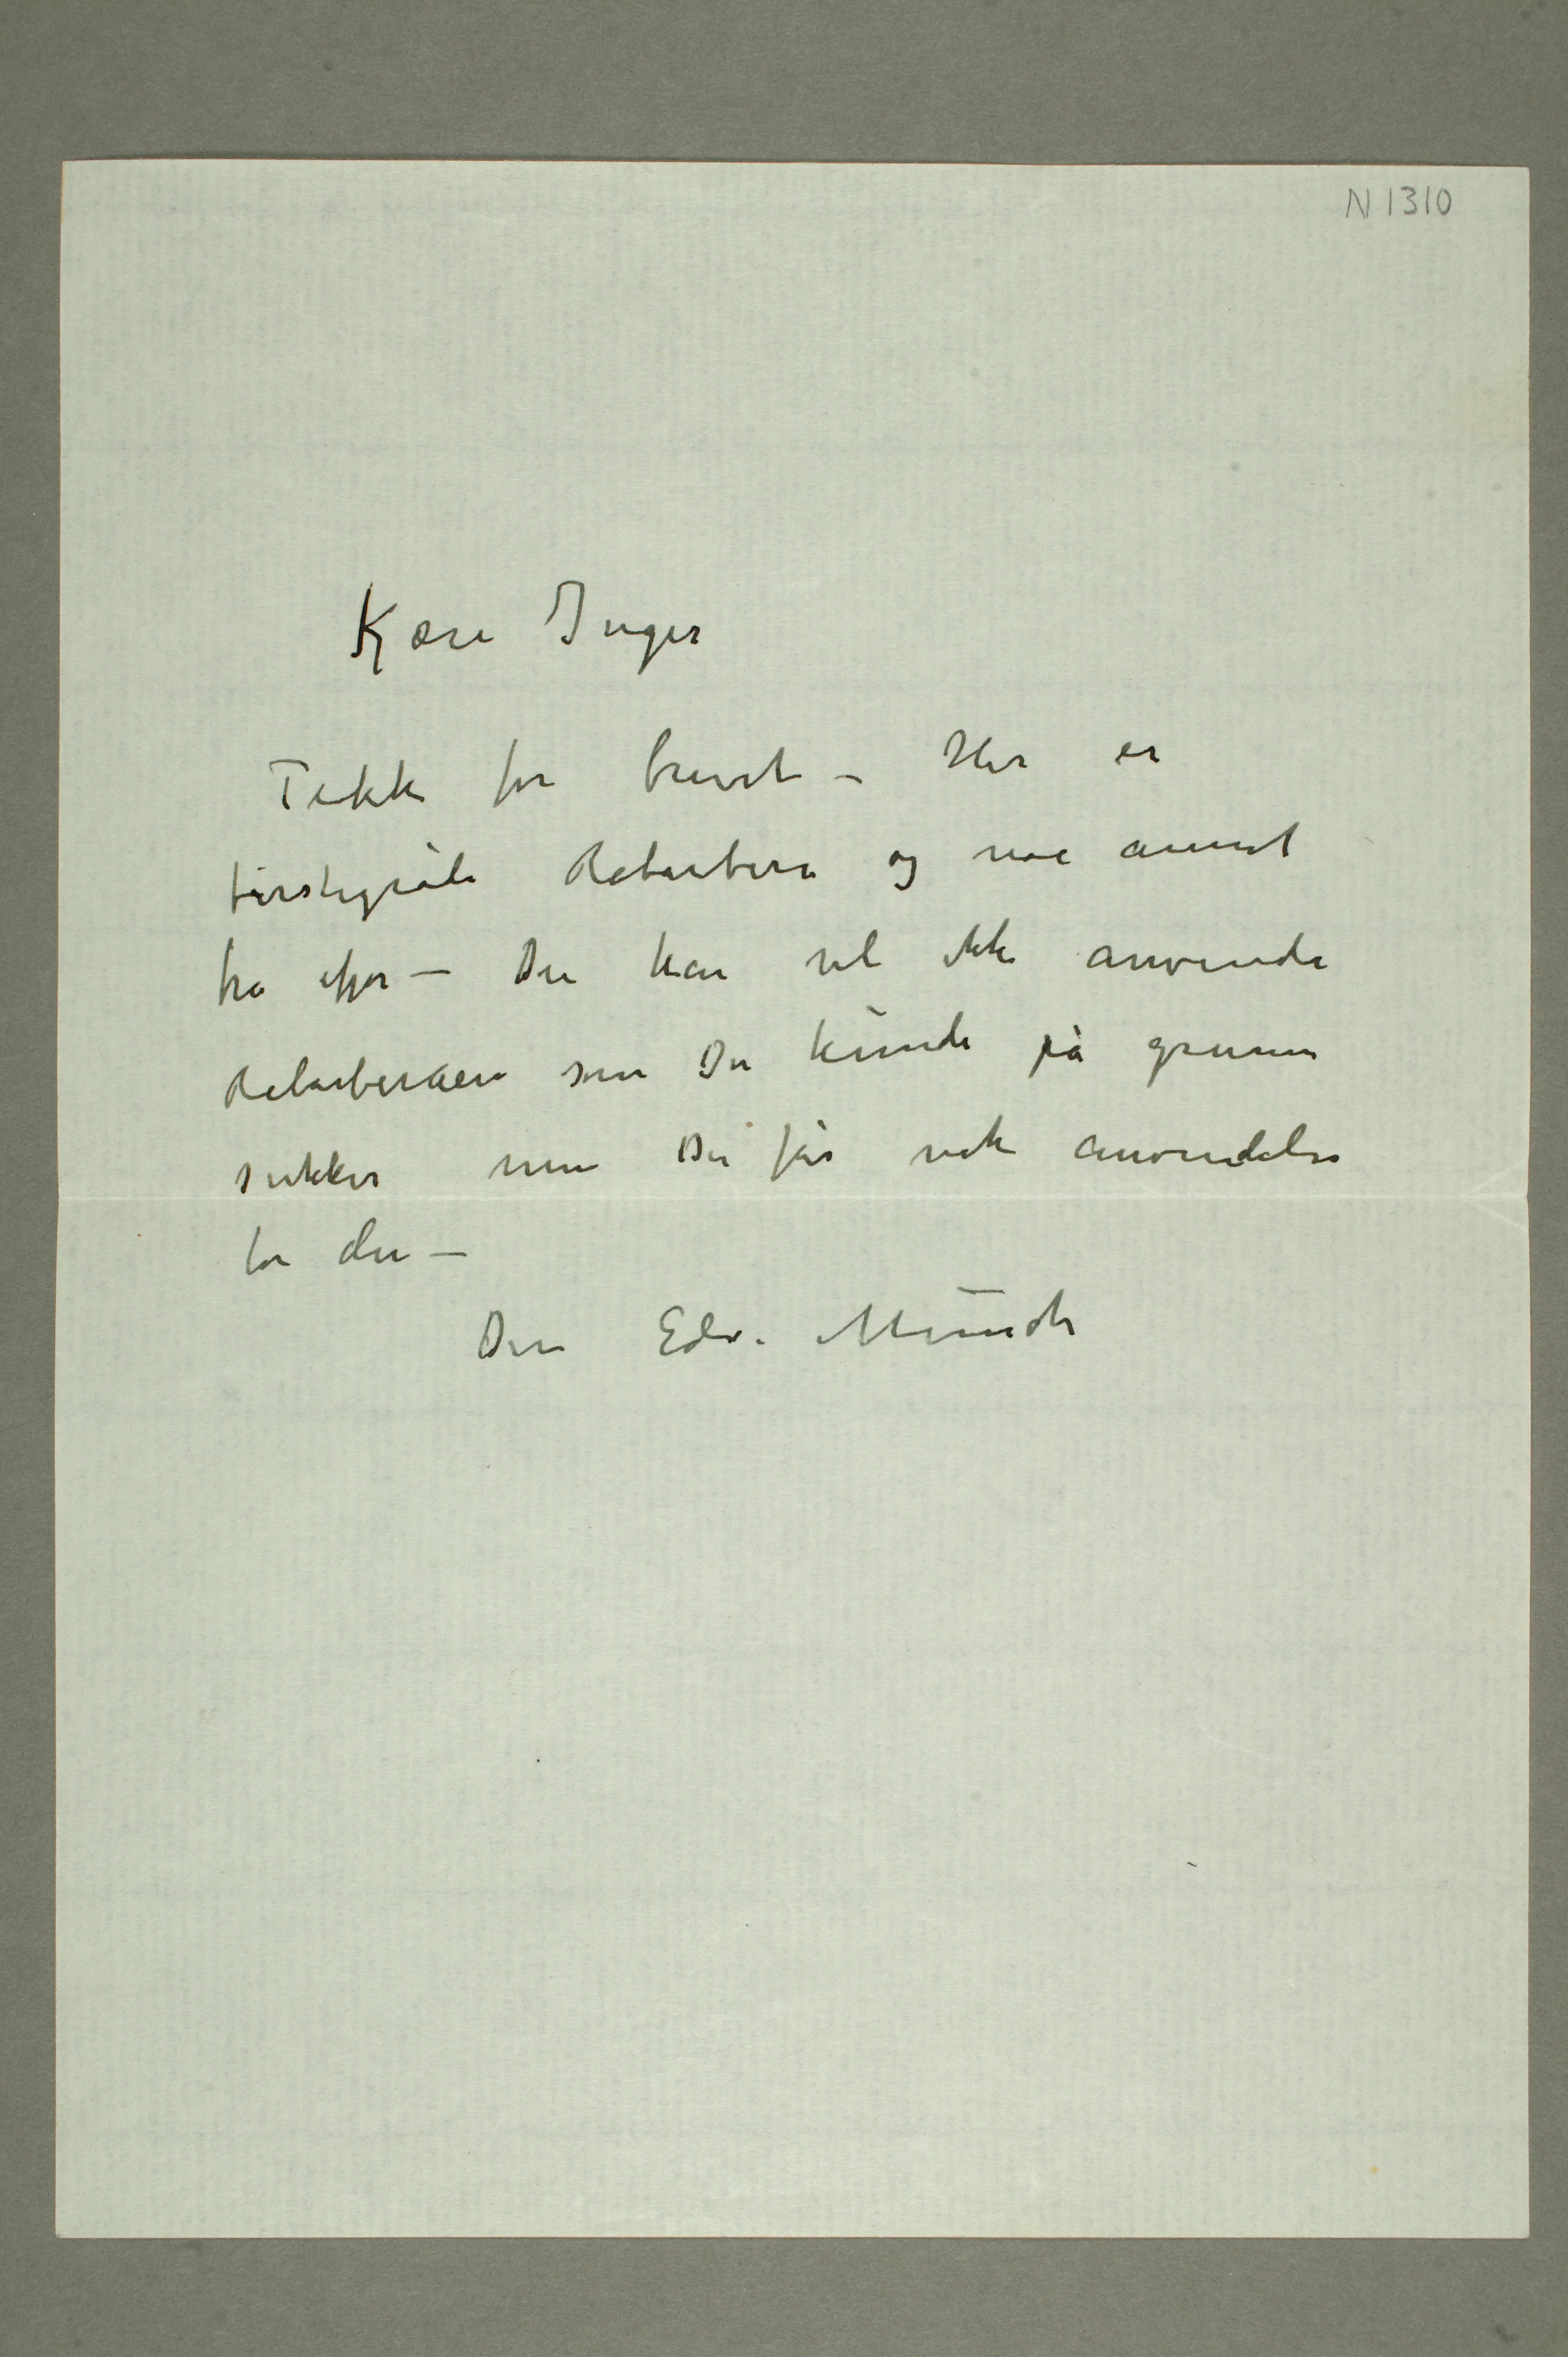 N 1310
Kære Inger
Takk for brevet – Her er
førstegrøde Rabarbera og noe annet
fra ifjor – Du kan vel ikke anvende
Rabarberaen som Du kunde på grunn
sukker men Du får nok anvendelse
for den –
Din Edv. Munch